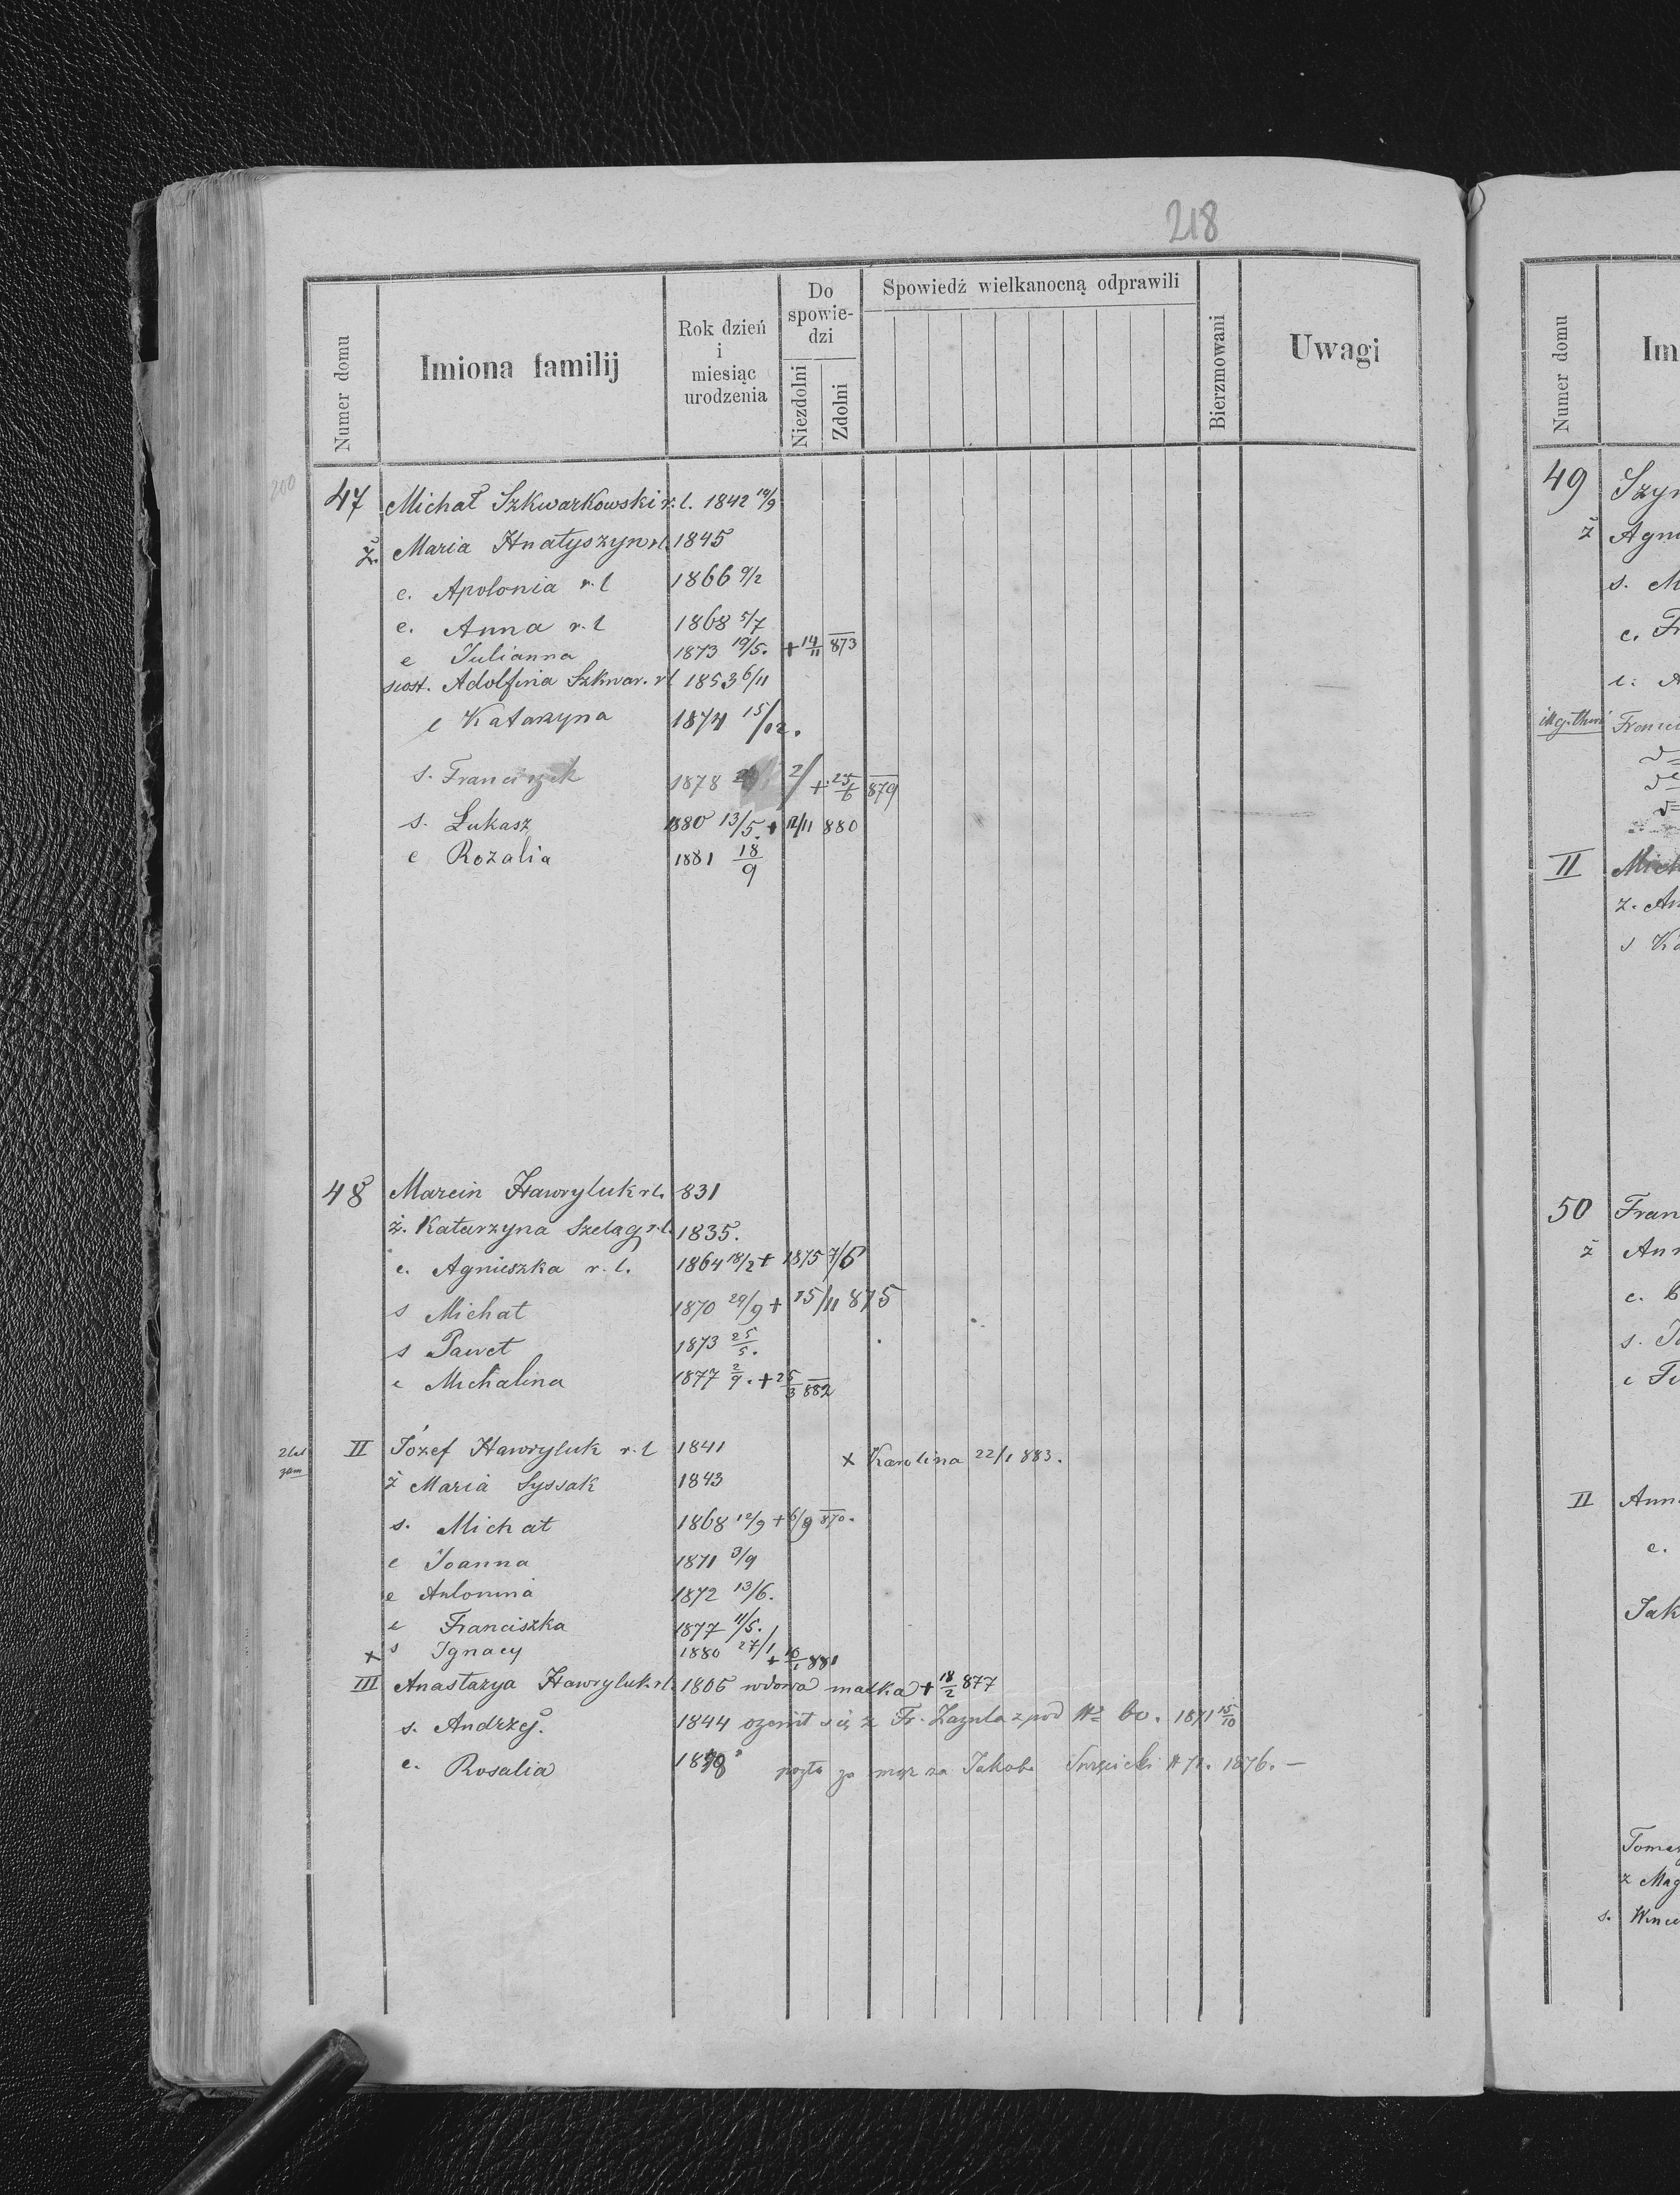 218
Numer domu
Imiona familij
Rok dzień i miesiąc urodzenia
Do spowiedzi
Niezdolni
Zdolni
Spowiedź wielkanocną odprawili
Bierzmowani
Uwagi
200
47 Michał Szkwarkowski r. l. 1842 14/9
ż. Maria Hnatyszyn r.l. 1845
c. Apolonia r. l 1866 9/2
c. Anna r. l 1868 5/7
c Julianna 1873 19/5. + 14/11 873
siost. Adolfina Szkwar. rl 1853 6/11
c Katarzyna 1874 15/12.
s. Franciszek 1878 2/ + 25/6 879
s. Łukasz 1880 13/5. + 12/11 880
c Rozalia 1881 18/9
48 Marcin Hawryluk r.l. 831
ż. Katarzyna Szeląg r.l. 1835.
c. Agnieszka r. l. 1864 18/2 + 1875 7/6
s Michał 1870 29/9 + 15/11 875
s Paweł 1873 25/5.
c Michalina 1877 2/9. + 25/3 882
II Józef Hawryluk r. l 1841
+ Karolina 22/1 883.
ż Maria Syssak 1843
s. Michał 1868 12/9 + 6/9 870.
c Joanna 1871 3/9
c Antonina 1872 13/6.
c Franciszka 1877 11/5.
+ s Ignacy 1880 27/1 + 10/1 881
III Anastazya Hawryluk r.l. 1806 wdowa matka + 18/2 877
s. Andrzej. 1844 ożenił się z Fr. Zazula z pod No 60. 1871 15/10
c. Rosalia poszła za mąż za Jakoba 71. 1876. —
Numer domu
Im
49 Szym
ż Agni
s. M
c. Fr
c. A
Franci
II Mich
ż. An
s Ka
50 Fran
ż Ann
c.
s. J
c Fe
II Ann
c.
Jak
Tomas
ż Mag
s. Wince